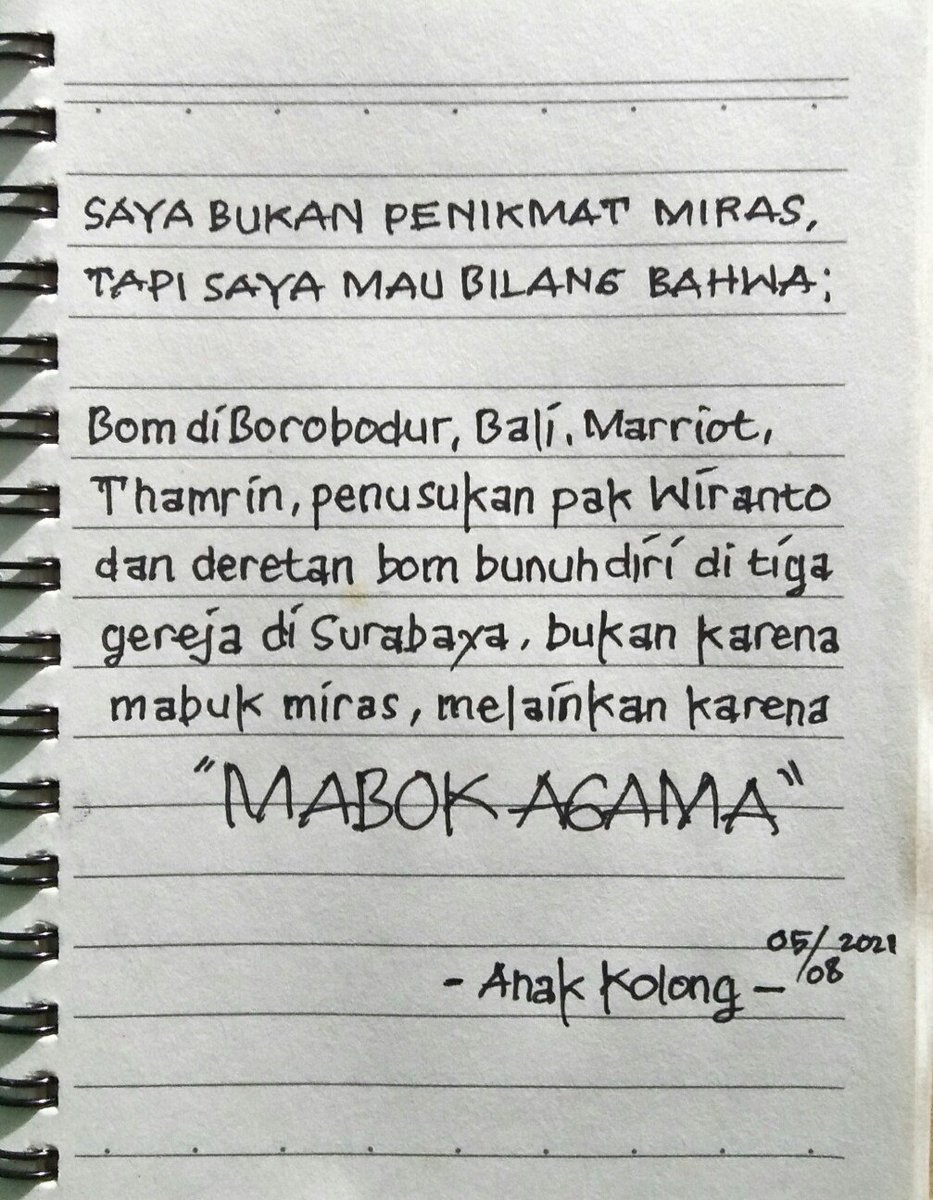 SAYA BUKAN PENIKMAT MIRAS,
TAPI SAYA MAU BILANG BAHWA;
Bom di Borobodur, Bali, Marriot,
Thamrin, penusukan pak Wiranto
dan deretan bom bunuh diri di tiga
gereja di Surabaya, bukan karena
mabuk miras, melainkan karena
"MABOK AGAMA"
- Anak Kolong - 05/08/2021